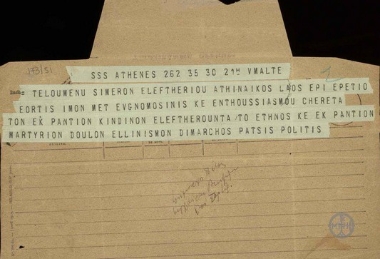 SSS ATHENES 262 35 30 21H VMALTE
TELOUMENU SIMERON ELEFTHERIOU ATHINAIKOS LAOS EPI EPETIO
EORTIS IMON MET EVGNOMOSINIS KE ENTHOUSSIASMOU CHERETA
TON EK PANTION KINDINON ELEFTHEROUNTA/TO ETHNOS KE EK PANTION
MARTYRION DOULON ELLINISMON DIMARCHOS PATSIS POLITIS